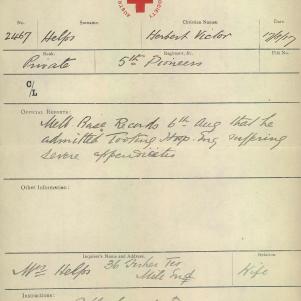 SOCIETY
No. Surname: Christian Names: Date:
2467 Helps Herbert Victor
Rank: Regiment, &c. File No.
Private 5th Pioneers
C/L
OFFICIAL REPORTS:
Melb Base Records 6th Aug that he
admitted Tooting Hosp. Eng suffering
severe appendicitis
Other Information:
Inquirer's Name and Address. Relation
Mrs Helps 36 Fisher Ter Wife
Mile End
Instructions: